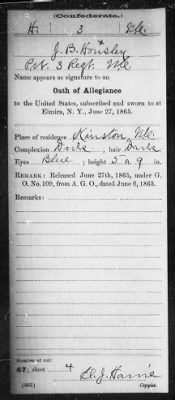 (Confederate.)
H. 3 N.C.
J. B. Housley
Pvt. 3 Regt. N.C.
Name appears as signature to an
Oath of Allegiance
to the United States, subscribed and sworn to at
Elmira, N. Y., June 27, 1865.
Place of residence Kinston, N.C.
Complexion Dark; hair Dark
Eyes Blue; height 5 ft. 9 in.
REMARK: Released June 27th, 1865, under G.
O. No. 109, from A. G. O., dated June 6, 1865.
Remarks:
Number of roll:
67; sheet 4
(631) Copyist.